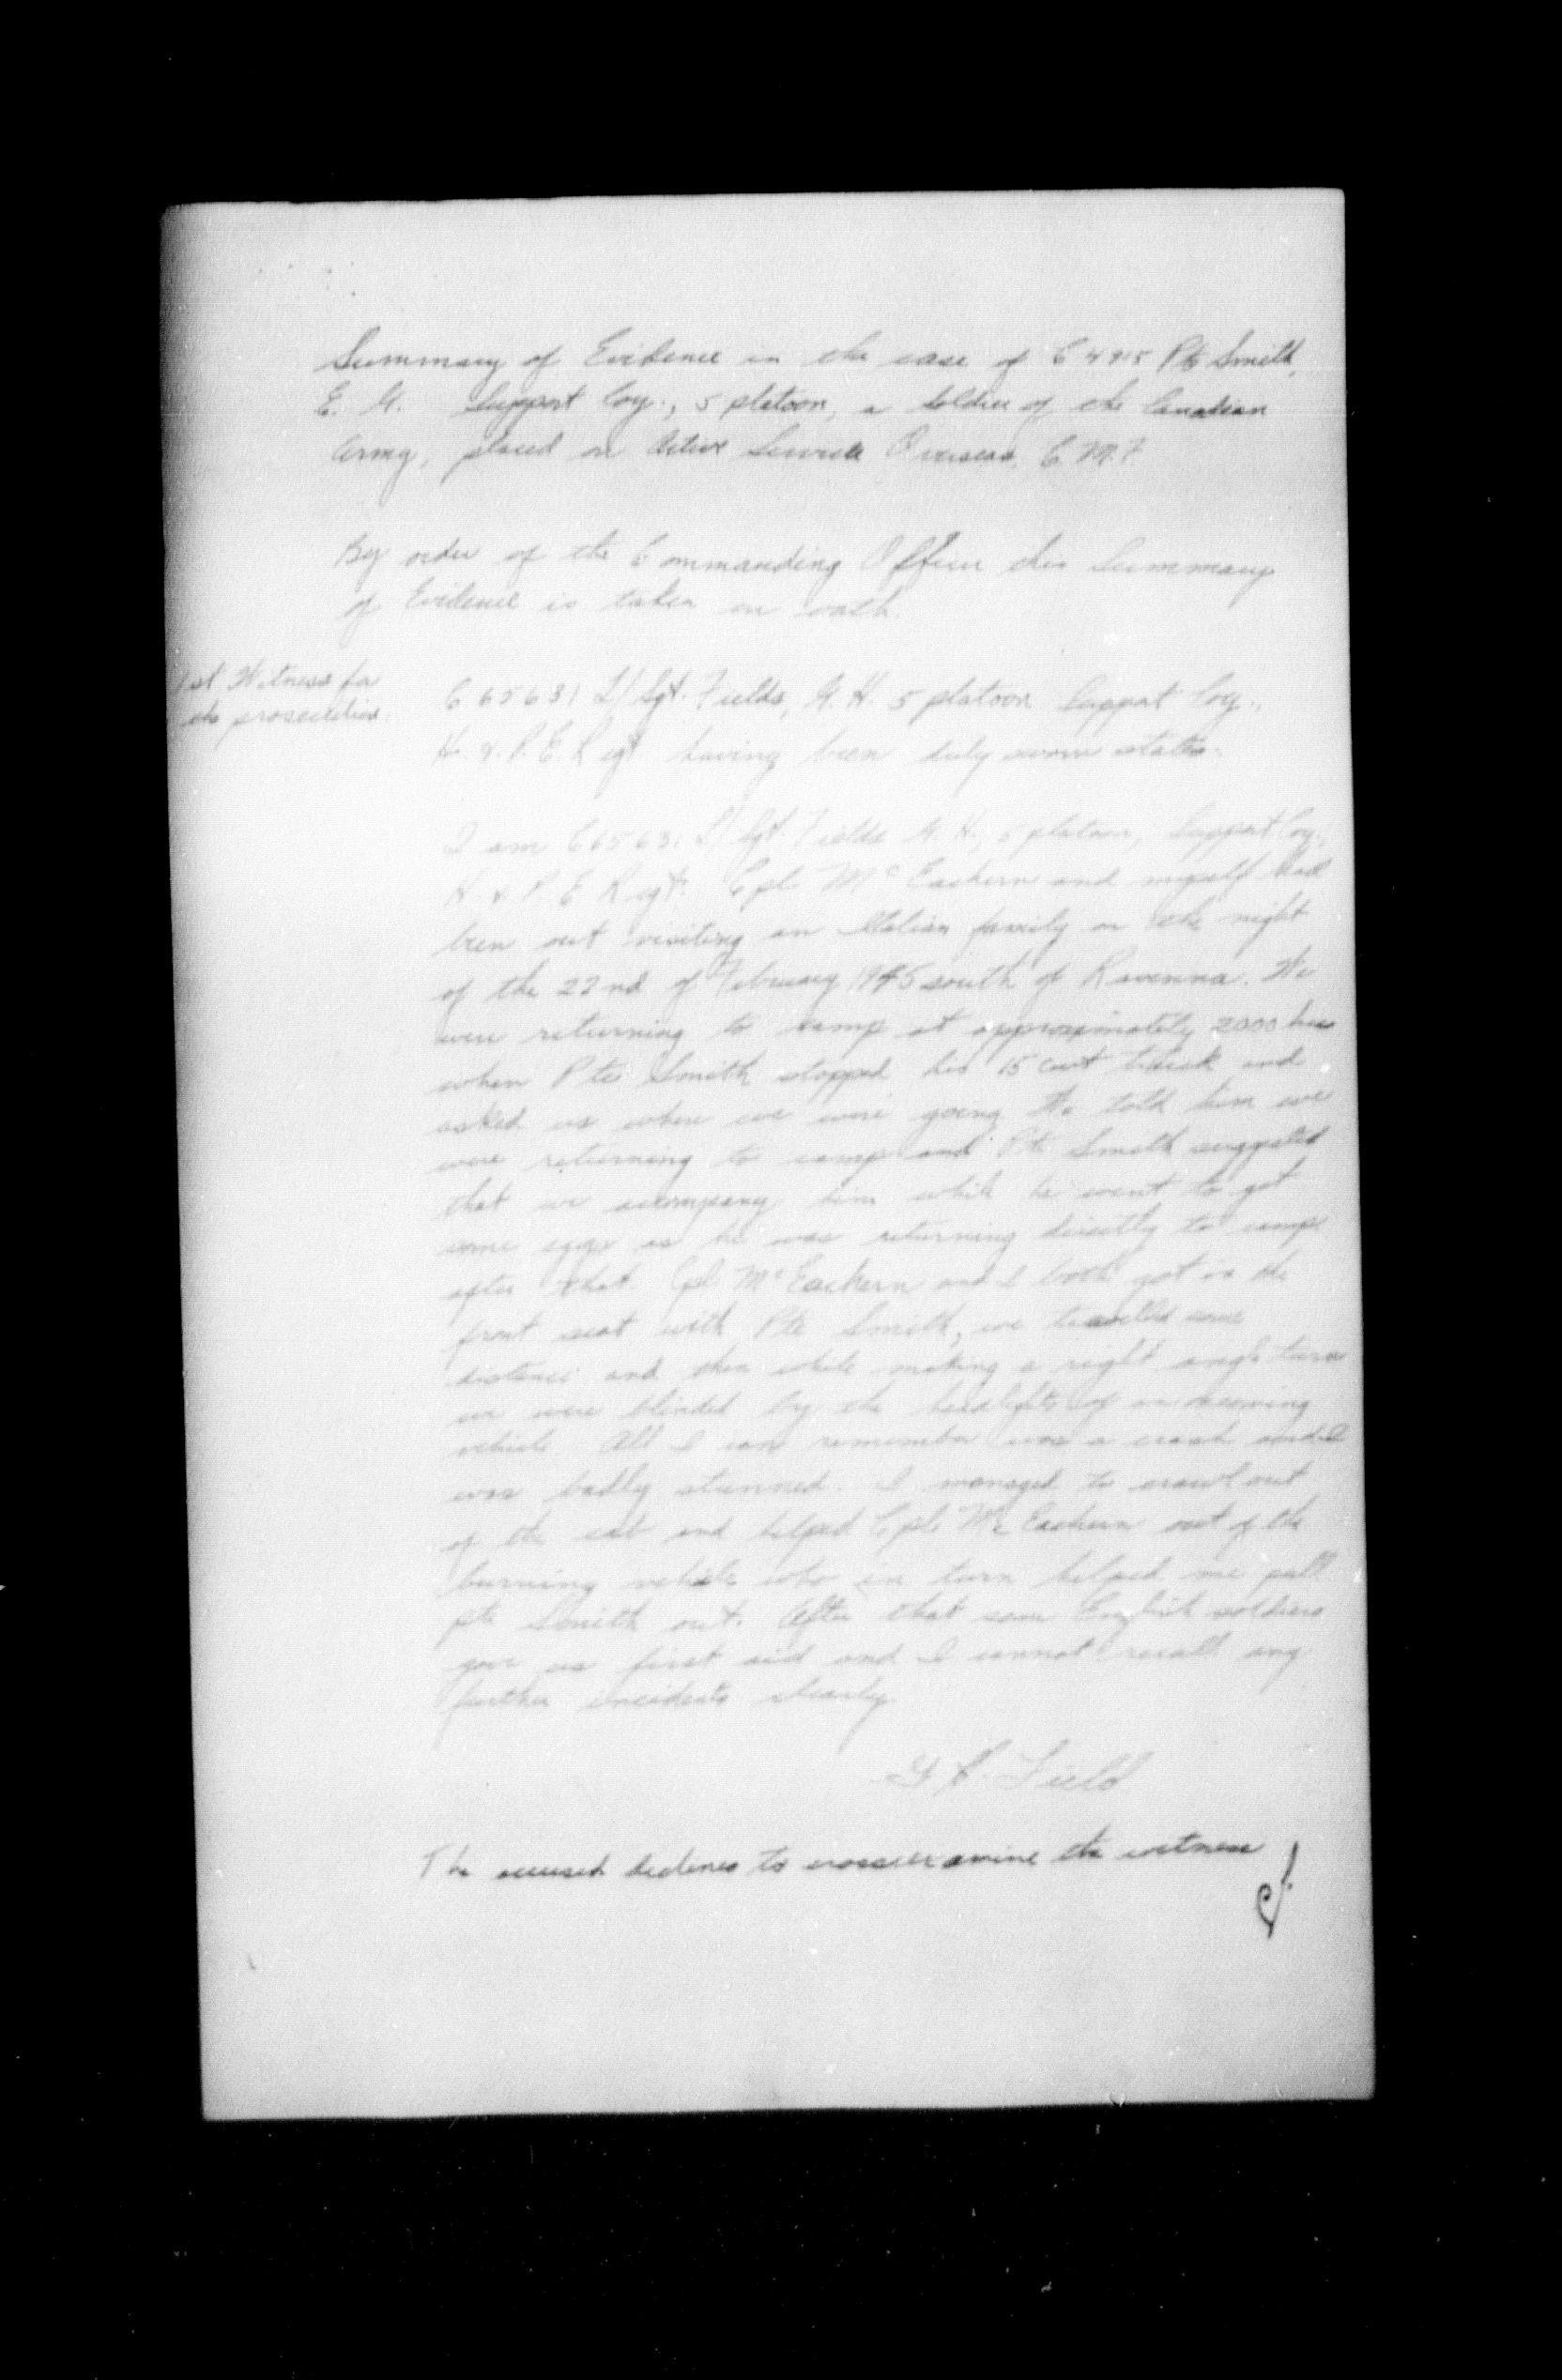 Summary of Evidence in the case of C 4915 Pte Smith,
E. G. Support Coy., 5 platoon, a soldier of the Canadian
Army, placed on Active Service Overseas, C.M.F
By order of the Commanding Officer this Summary
of Evidence is taken on oath.
1st Witness for
the prosecution.
C 65631 L/Sgt. Fields, G. H. 5 platoon Support Coy.,
H. & P. E. Regt having been duly sworn states:
I am C65631 L/Sgt. Fields G. H., 5 platoon, Support Coy.,
H & P. E Regt. Cpl. McEachern and myself had
been out visiting an Italian family on the night
of the 22nd of February 1945 south of Ravenna. We
were returning to camp at approximately 2000 hrs
when Pte Smith stopped his 15 cwt truck and
asked us where we were going. We told him we
were returning to camp and Pte Smith suggested
that we accompany him while he went to get
some eggs as he was returning directly to camp
after that. Cpl McEachern and I both got in the
front seat with Pte Smith, we travelled some
distance and then while making a right angle turn
we were blinded by the headlights of an oncoming
vehicle. All I can remember was a crash and I
was badly stunned. I managed to crawl out
of the cab and helped Cpl. McEachern out of the
burning vehicle who in turn helped me pull
pte Smith out. After that some English soldiers
gave us first aid and I cannot recall any
further incidents clearly.
G H. Field
The accused declines to cross examine the witness